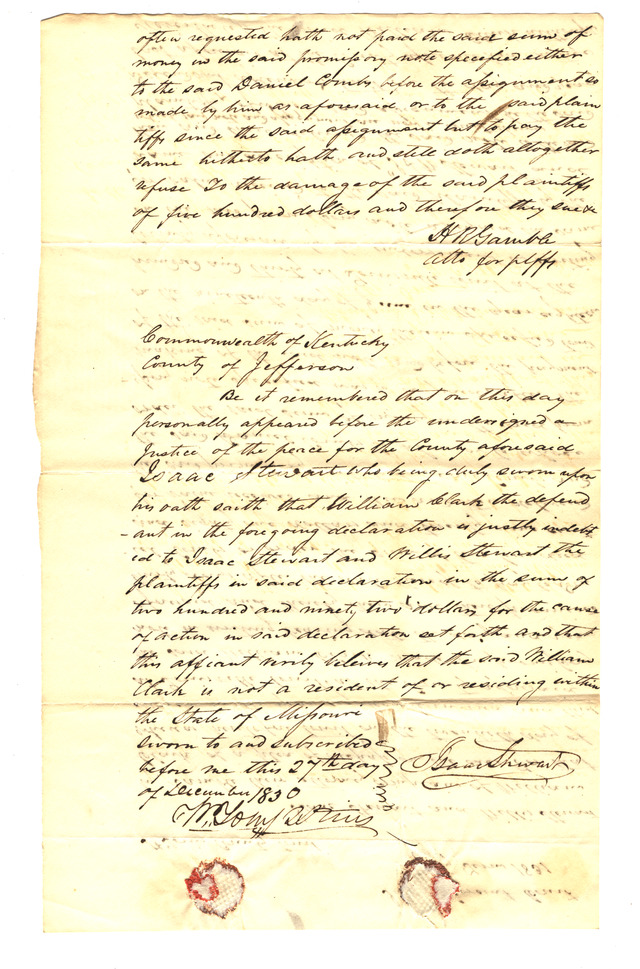 often requested hath not paid the said sum of
money in the said promissory note specefied either
to the said Daniel Combs before the assignment so
made by him as aforesaid or to the said plain
tiffs since the said assignment but to pay the
same hitherto hath and still doth altogether
refuse To the damage of the said plaintiffs
of five hundred dollars and therefore they sue &c
H R Gamble
atto for plffs
Commonwealth of Kentucky
County of Jefferson
Be it remembered that on this day
personally appeared before the undersigned a
Justice of the peace for the County aforesaid
Isaac Stewart who being duly sworn upon
his oath saith that William Clark the defend
-ant in the foregoing declaration is justly indebt
ed to Isaac Stewart and Willis Stewart the
plaintiffs in said declaration in the sum of
two hundred and ninety two dollars for the cause
of action in said declaration set forth and that
this affiant verily beleives that the said William
Clark is not a resident of or residing within
the State of Missouri
Sworn to and subscribed
before me this 27th day
of December 1830
Isaac Stewart